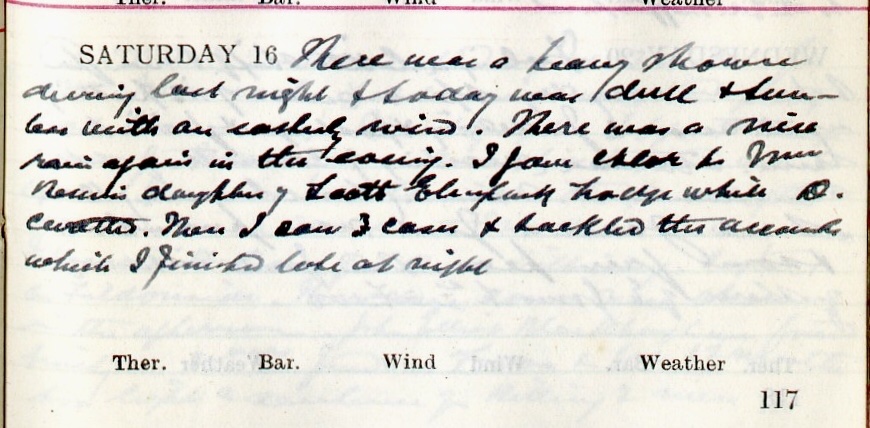 Ther. Bar. Wind Weather
SATURDAY 16 There was a heavy shower
during last night & today was dull & sun-
less with an easterly wind. There was a nice
rain again in the evening. I gave chlor to Mrs
daughter of Scott Elmpark Lodge while D.
Then I saw 3 cases & tackled the accounts
which I finished late at night
Ther. Bar. Wind Weather
117